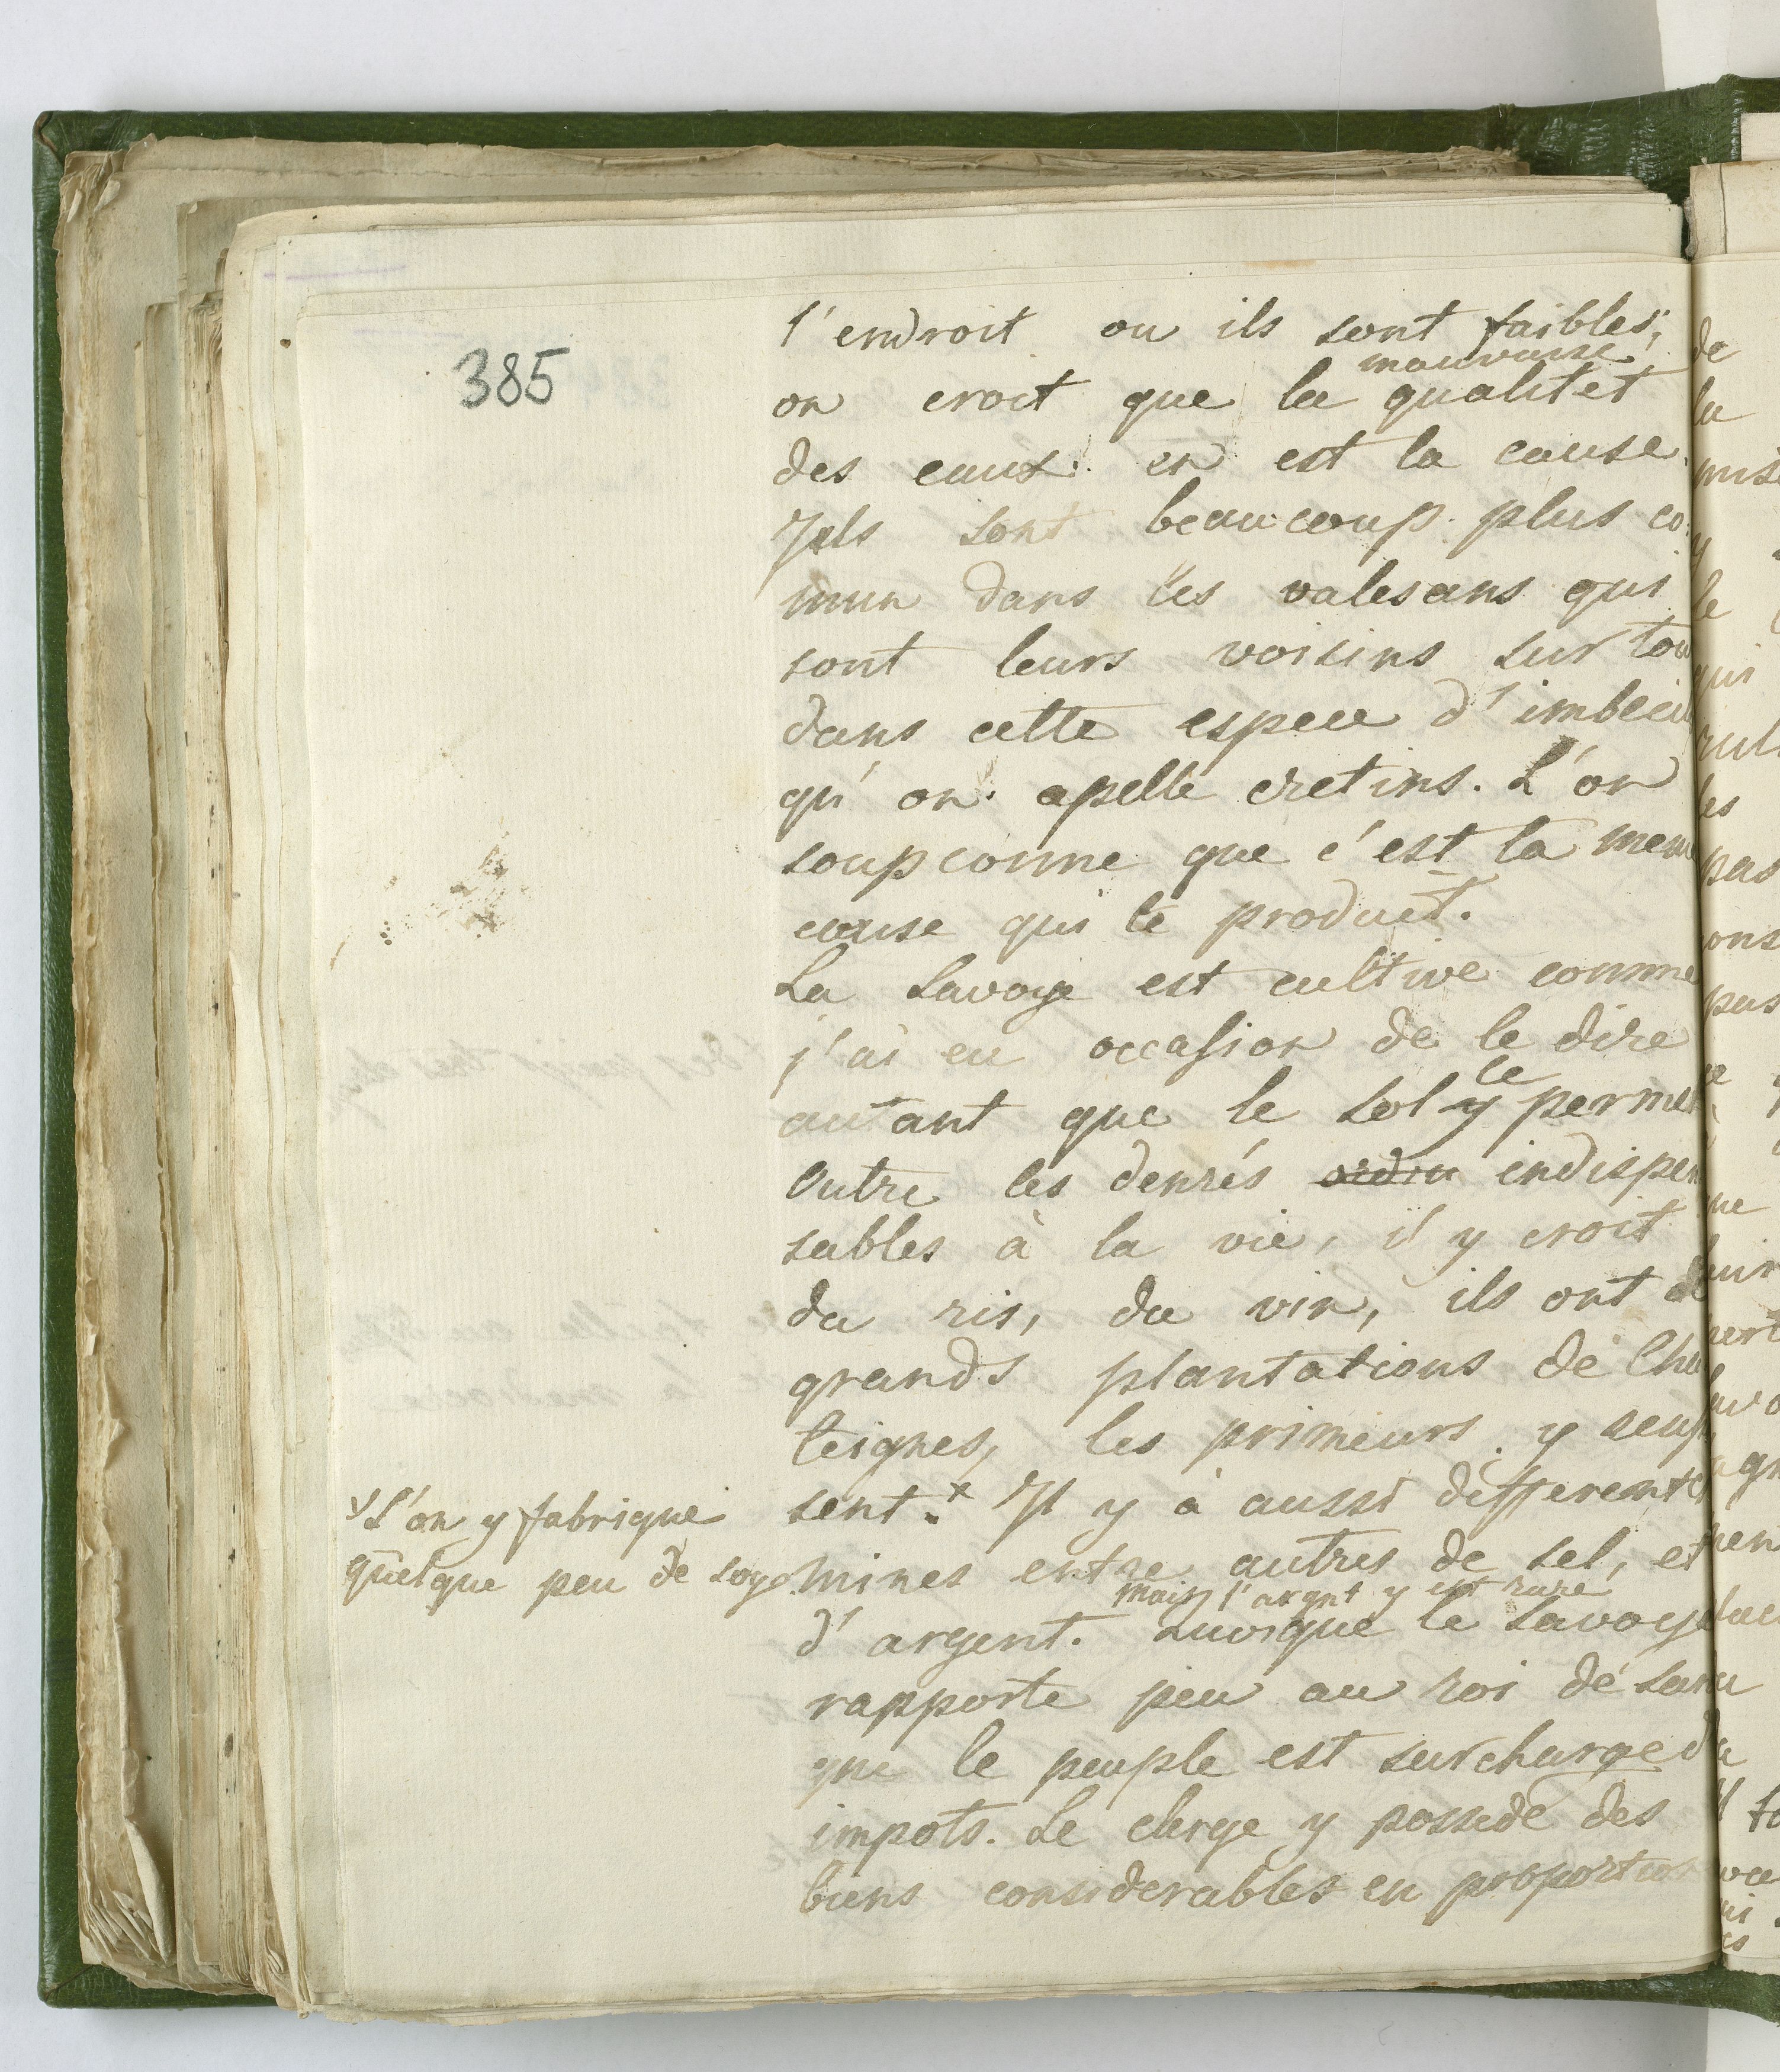 385
l'endroit ou ils sont faibles;
mauvaise
on croit que la qualitet
des eaux en est la cause.
Ils sont beaucoup plus co
mun dans les valesans qui
sont leurs voisins surtou
dans cette espece d'imbecil
qu'on apelle cretins. L'on
soupconne que c'est la mem
cause qui le produit.
La Savoye est cultive comme
j'ai eu occasion de le dire
le
autant que le sol y permet
Outre les denrés indispen
sables à la vie, il y croit
du ris, du vin, ils ont de
grands plantations de Cha
teignes, les primeurs y
sent.x Il y à aussi differente
x L'on y fabrique
quelque peu de soye.
mines entre autres de sel, et
mais l'argnt y est rare
d'argent. Luoique le Savoye
rapporte peu au roi de Sar
que le peuple est surcharge d
impots. Le clerge y possede des
biens considerables en proportion